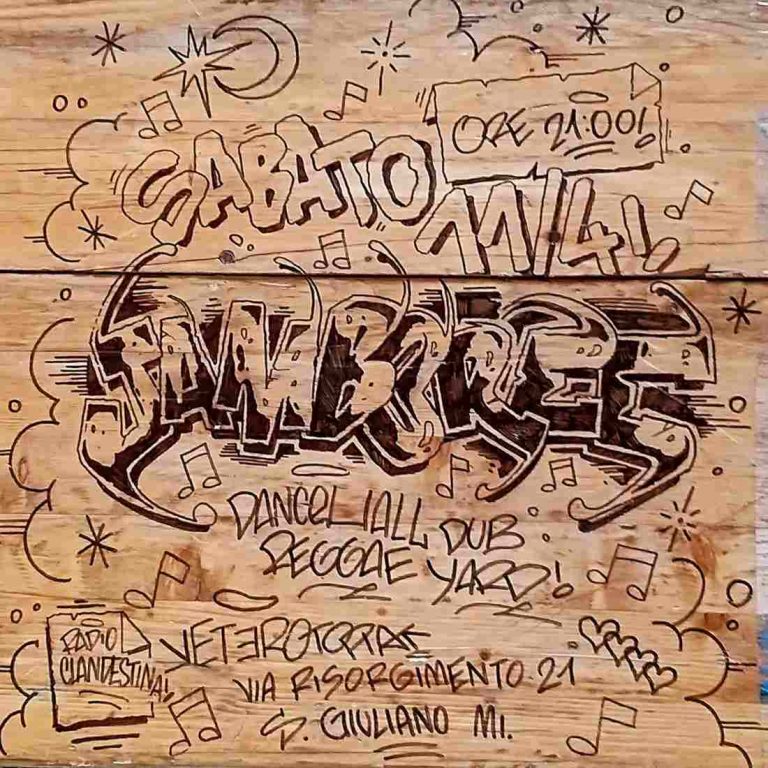 ORE 21:00!
SABATO
11/4!
JAMBOREE
DANCEHALL DUB
REGGAE YARD!
RADIO
CLANDESTINA!
ETEROTOPIA
VIA RISORGIMENTO 21
S. GIULIANO MI.